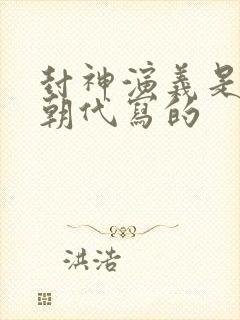 封神演義是
朝代寫的
洪浩